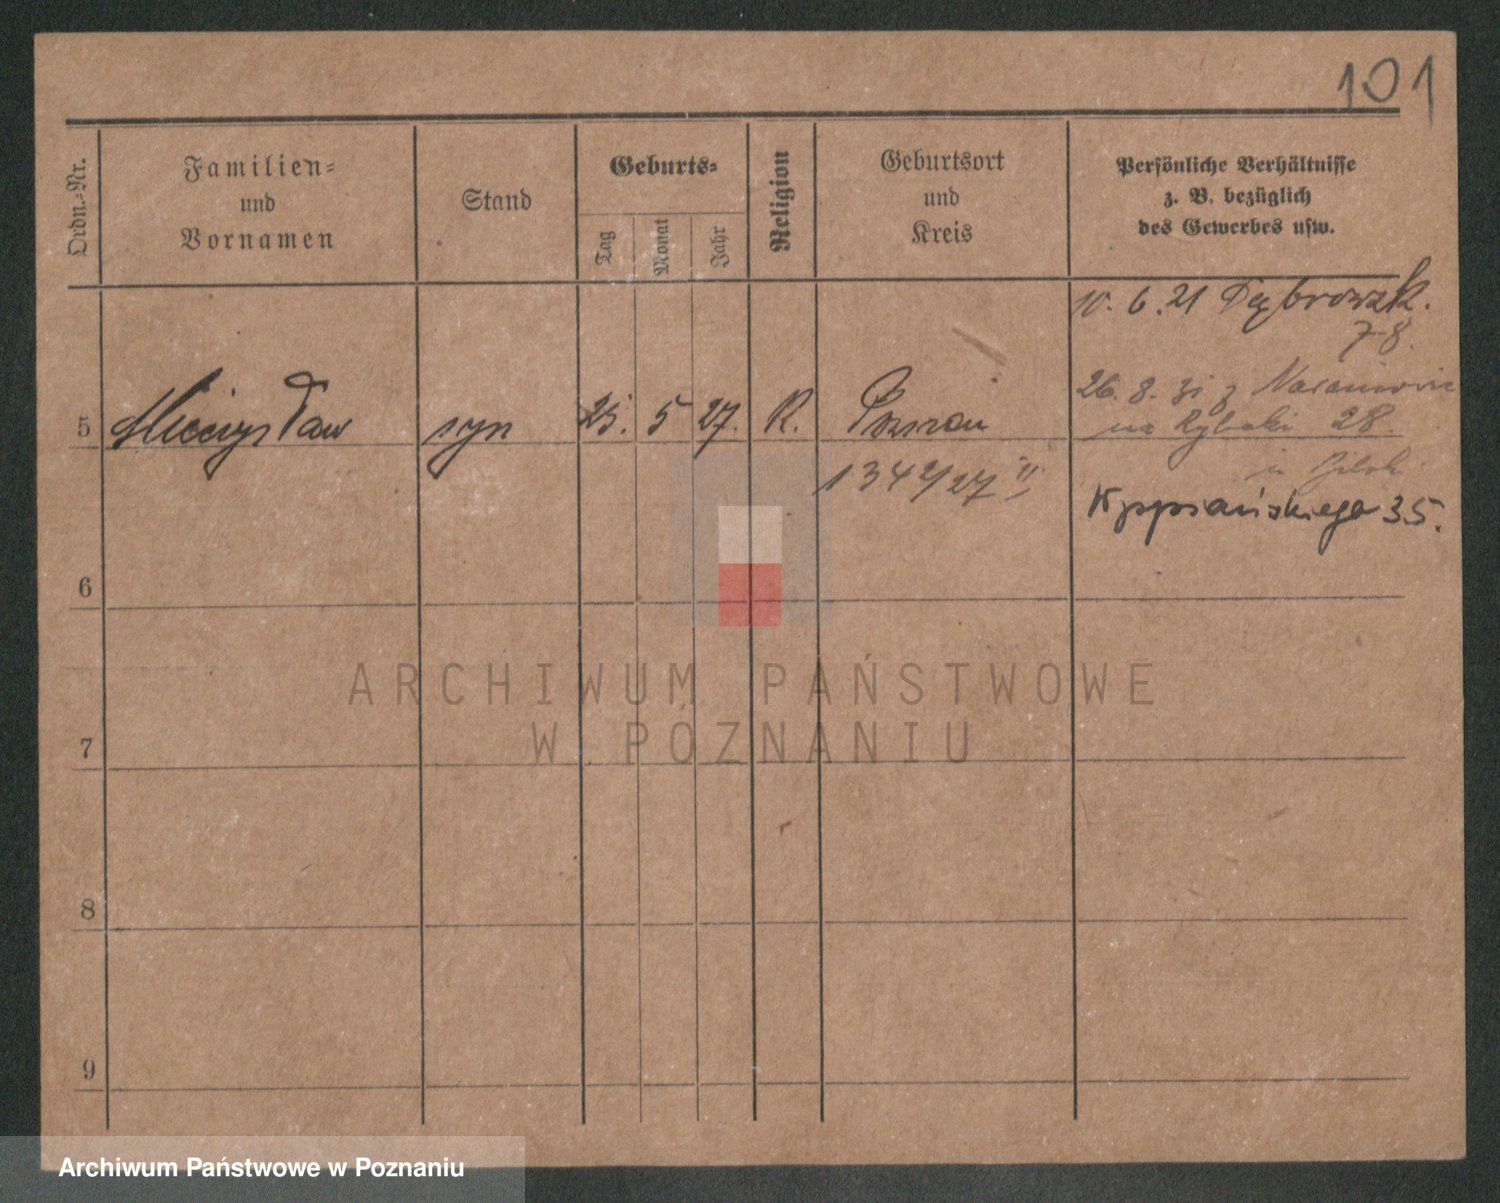 101
Ordn.-Nr.
Familien-
und
Vornamen
Stand
Geburts-
Tag
Monat
Jahr
Religion
Geburtsort
und
Kreis
Persönliche Verhältnisse
z. B. bezüglich
des Gewerbes usw.
10. 6. 21 Dąbrowsk.
7-8.
26. 8. 31 z
na Rybaki 28.
5 Mieczysław syn 25. 5 27. R. Poznań
1342/27 II
35.
6
7
8
9
ARCHIWUM PAŃSTWOWE
W POZNANIU
Archiwum Państwowe w Poznaniu